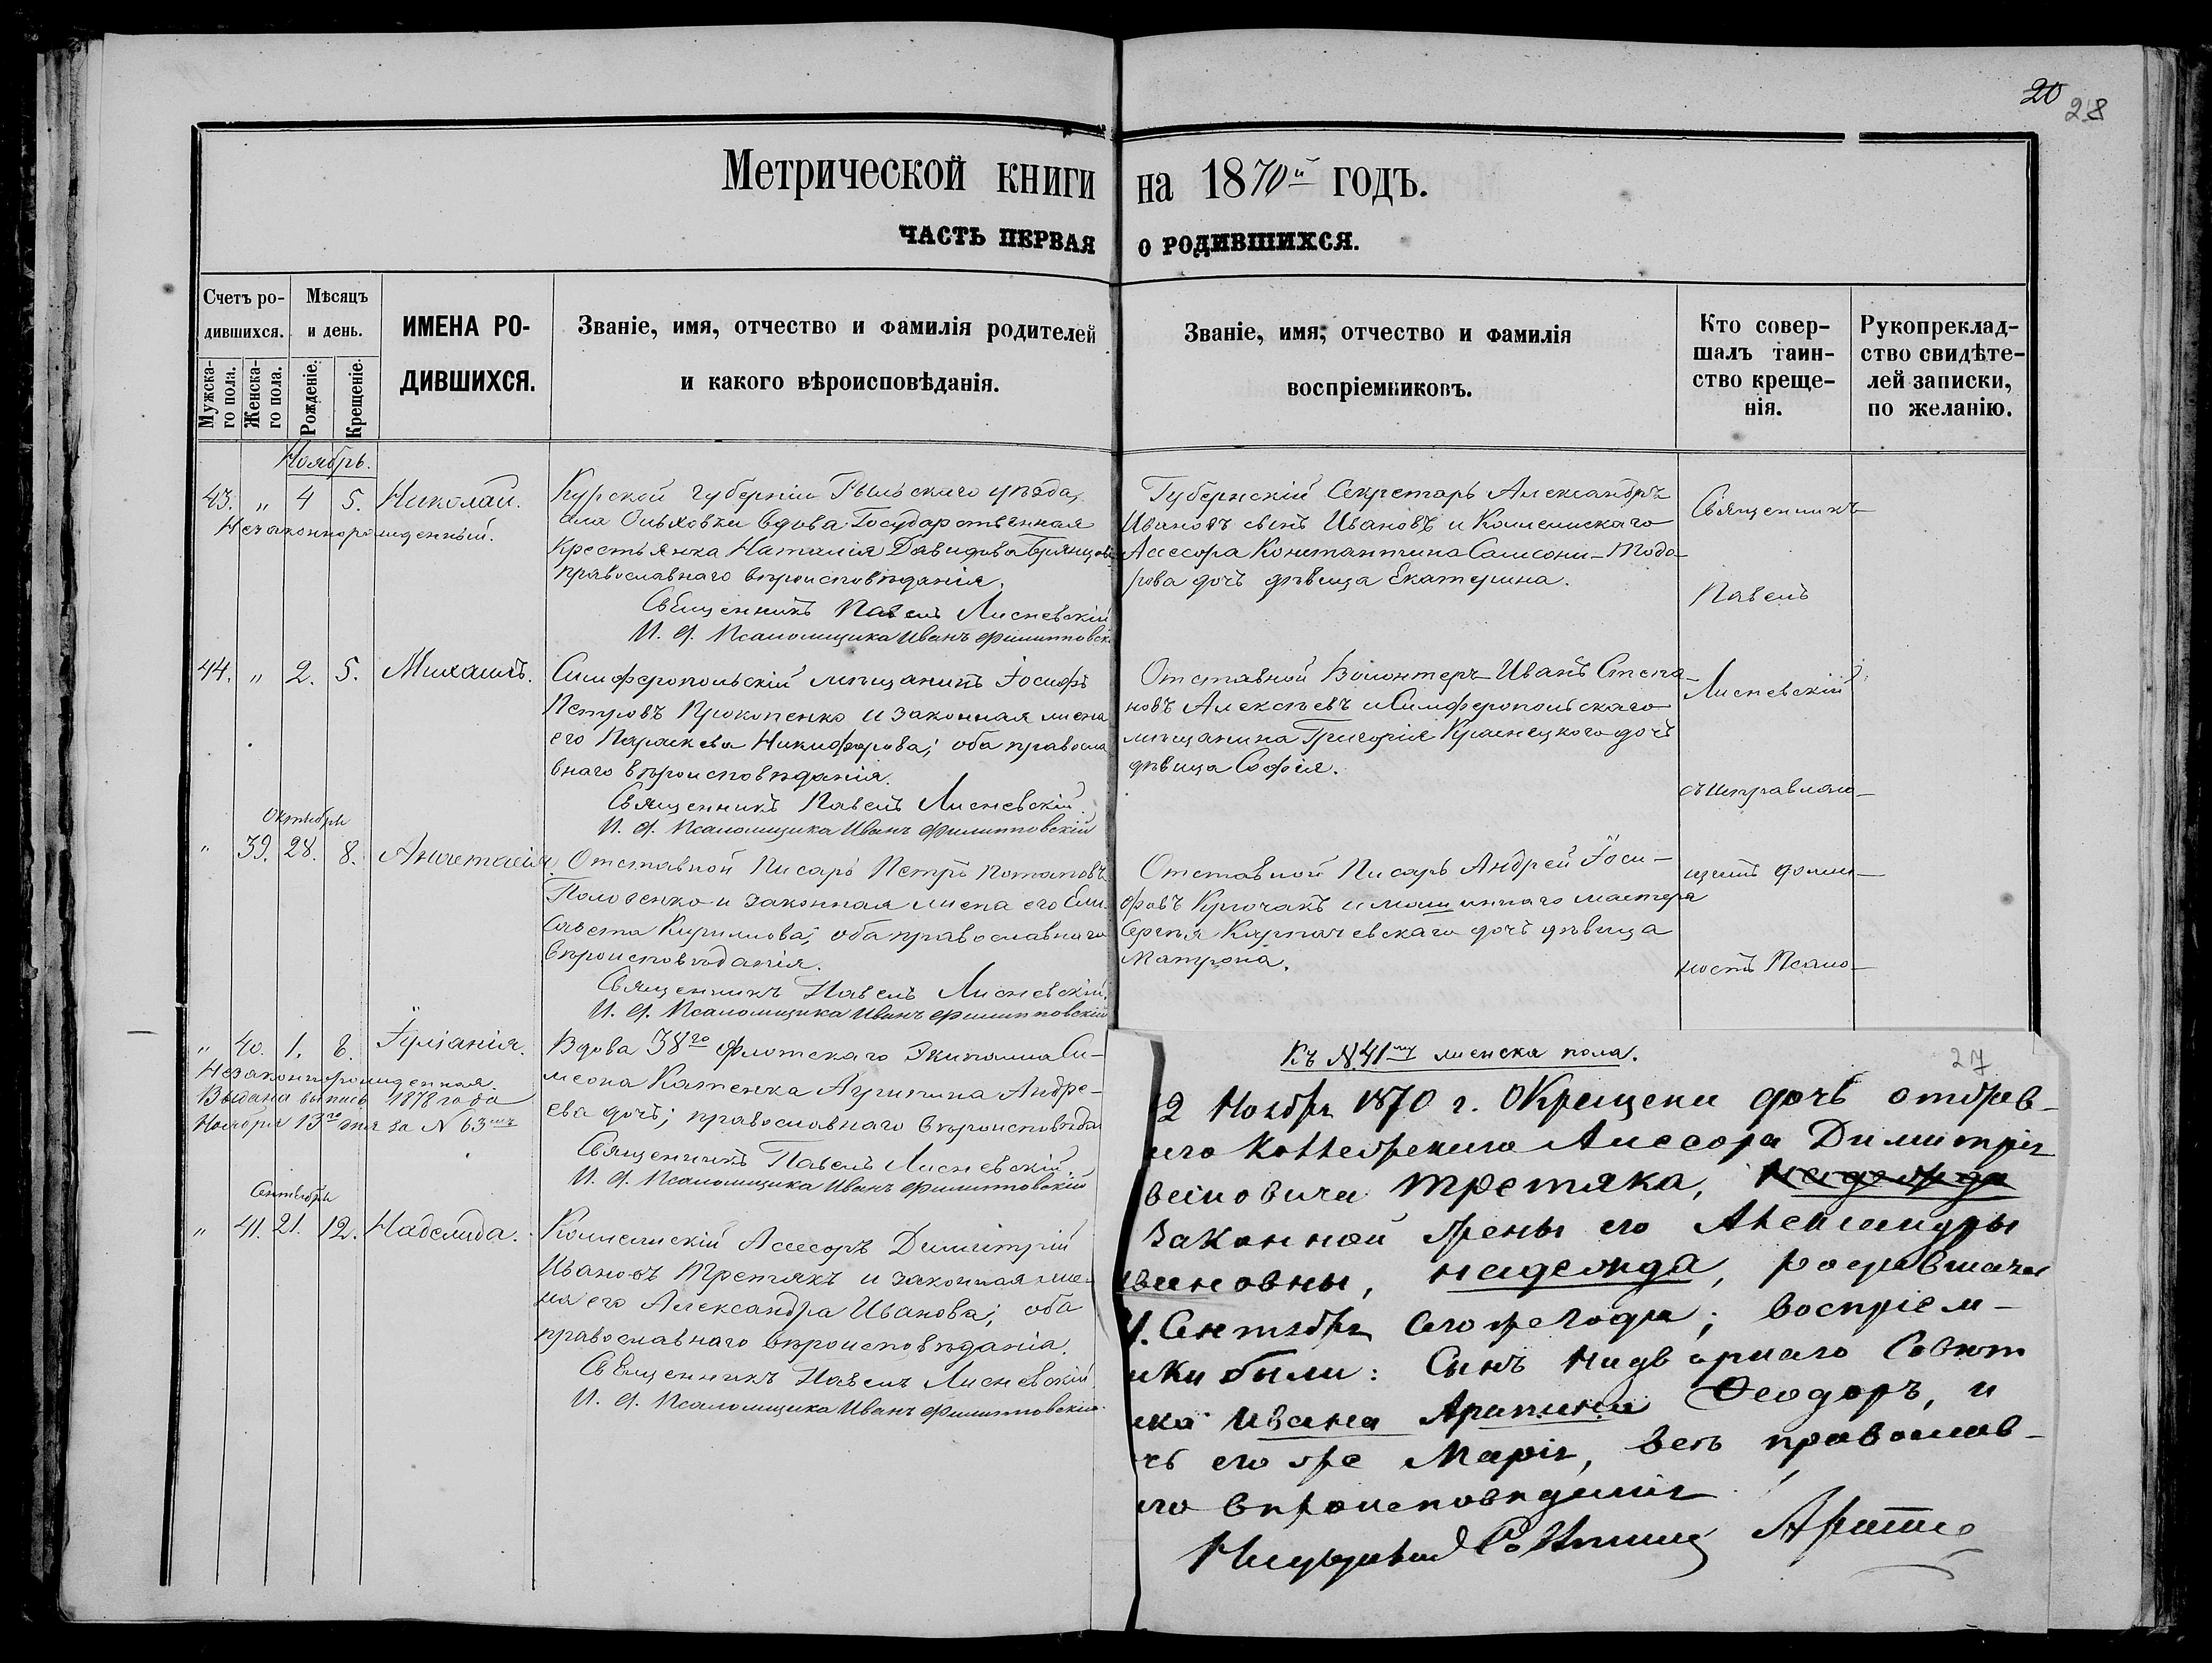 20
28
Метрической книги на 1870й годъ.
ЧАСТЬ ПЕРВАЯ О РОДИВШИХСЯ.
Счетъ ро-
дившихся.
Мужска-
го пола.
Женска-
го пола.
Мѣсяцъ
и день.
Рожденіе.
Крещеніе.
ИМЕНА РО-
ДИВШИХСЯ.
Званіе, имя, отчество и фамилія родителей
и какого вѣроисповѣданія.
Званіе, имя, отчество и фамилія
воспріемниковъ.
Кто совер-
шалъ таин-
ство креще-
нія.
Рукоприклад-
ство свидѣте-
лей записки,
по желанію.
Ноябрь.
43. „ 4 5. Николай.
Незаконнорожденный.
Курской губерніи Рыльскаго уѣзда,
Ольховки вдова Государственная
крестьянка Наталія Давидова Брянцова
православнаго вѣроисповѣданія.
Священникъ Павелъ Лисневскій
И. д. Псаломщика Иванъ Филипповскі
Губернскій Секретарь Александръ
Ивановъ сынъ Ивановъ и Коллежскаго
Ассесора Константина Самсони-Тодо-
рова дочь дѣвица Екатерина.
44. „ 2. 5. Михаилъ.
Симферопольскій мѣщанинъ Іосифъ
Петровъ Прокопенко и законная жена
его Параскева Никифорова; оба правосла
внаго вѣроисповѣданія.
Священникъ Павелъ Лисневскій.
И. д. Псаломщика Иванъ Филипповскій
Отставной Волонтеръ Иванъ Степа-
новъ Алексѣевъ и Симферопольскаго
мѣщанина Григорія Краснецкого дочь
дѣвица Софія.
Октября
„ 39. 28. 8. Анастасія.
Отставной Писарь Петръ Потаповъ
Пологенко и законная жена его Ели-
савета Кириллова; оба православнаго
вѣроисповѣданія.
Священникъ Павелъ Лисневскій.
И. д. Псаломщика Иванъ Филипповскій
Отставной Писарь Андрей Іоси-
фовъ Крючакъ и машиннаго мастера
Сергѣя Карпачевскаго дочь дѣвица
Матрона.
„ 40. 1. 8. Іуліанія.
Незаконнорожденная.
Выдана выпись 1878 года
Ноября 13го дня за N 63мъ
Вдова 38го Флотскаго Экипажа Си-
меона Катенка Агрипина Андре-
ева дочь; православнаго вѣроисповѣда
Священникъ Павелъ Лисневскій.
И. д. Псаломщика Иванъ Филипповскій
Сентября
„ 41. 21. 12. Надежда.
Коллежскій Асесоръ Димитрій
Ивановъ Третякъ и законная же-
на его Александра Иванова; оба
православнаго вѣроисповѣданія.
Священникъ Павелъ Лисневскій
И. д. Псаломщика Иванъ Филипповскій
Священникъ
Павелъ
Лисневскій
съ исправляю-
щимъ долж-
ность Псало-
Къ N. 41му женска пола.
27
2 Ноября 1870 г. Окрещена дочь отстав-
его Коллежскаго Ассесора Димитрія
вановича Третяка, Надежда
Законной жены его Александры
вановны, Надежда, родившаяся
1. Сентября сего же года; воспріем-
ики были: Сынъ Надворнаго Совѣт
ика Ивана Арапина Ѳеодоръ, и
чь его же Марія, всѣ православ-
го вѣроисповѣданія